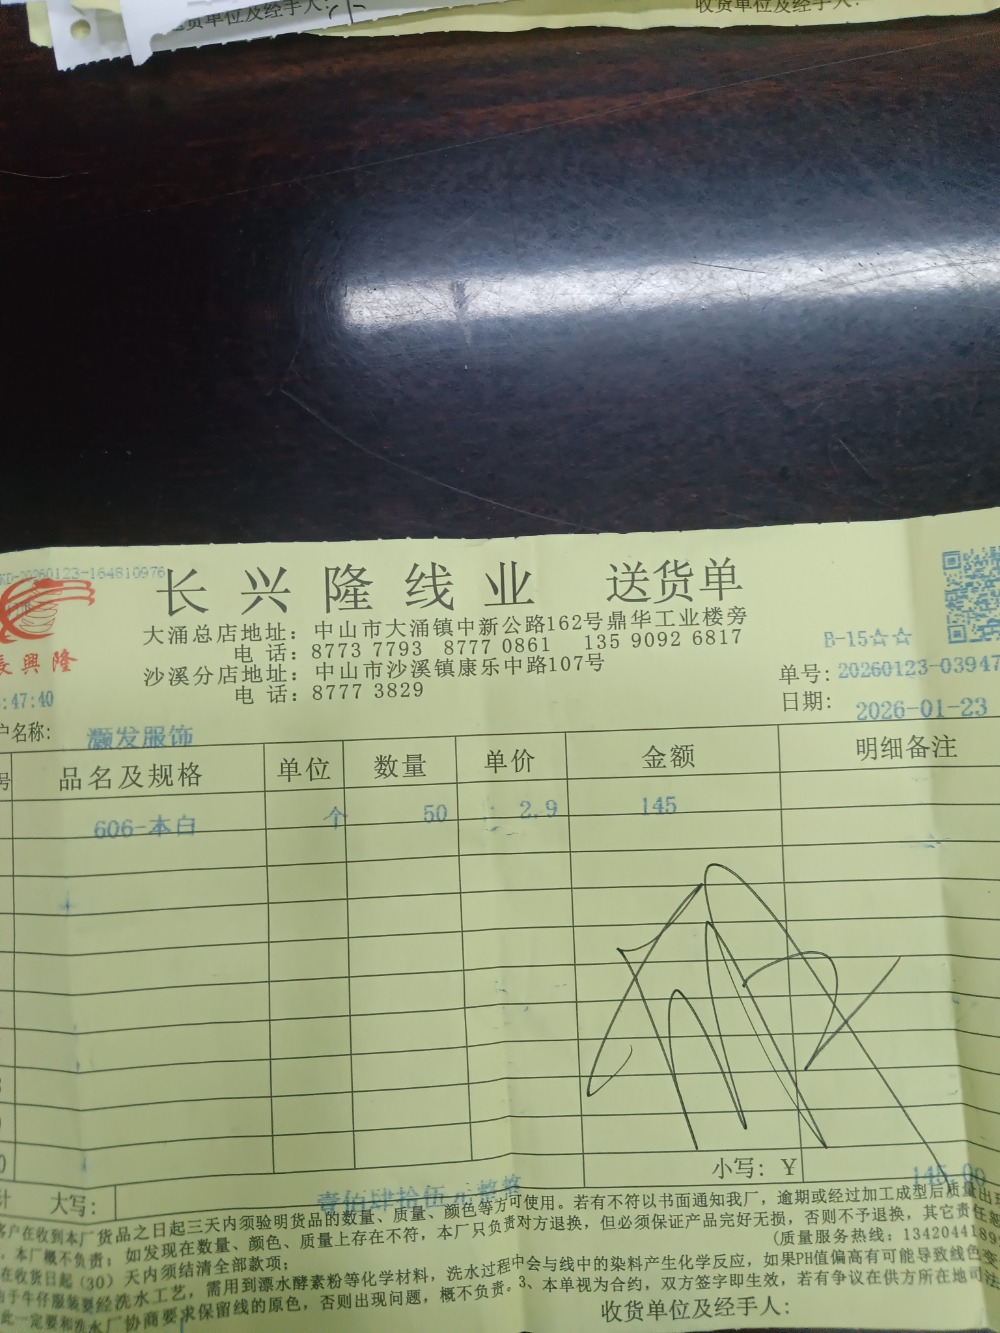 货单位及经手人:
收货单位及经手人:
KD-20260123-164810976
长兴隆线业 送货单
大涌总店地址: 中山市大涌镇中新公路162号鼎华工业楼旁
电 话: 8773 7793 8777 0861 135 9092 6817
沙溪分店地址: 中山市沙溪镇康乐中路107号
电 话: 8777 3829
興隆
B-15☆☆
单号: 20260123-03947
:47:40
日期: 2026-01-23
户名称: 灏发服饰
号 品名及规格 单位 数量 单价 金额 明细备注
606-本白 个 50 2.9 145
小写: ¥ 145.00
计 大写: 壹佰肆拾伍元整
客户在收到本厂货品之日起三天内须验明货品的数量、质量、颜色等方可使用。若有不符以书面通知我厂，逾期或经过加工成型后质量出现
，本厂概不负责；如发现在数量、颜色、质量上存在不符，本厂只负责对方退换，但必须保证产品完好无损，否则不予退换，其它责任
(质量服务热线: 134204418
在收货日起(30)天内须结清全部款项；
由于牛仔服装要经洗水工艺，需用到漂水酵素粉等化学材料，洗水过程中会与线中的染料产生化学反应，如果PH值偏高有可能导致线色变
此一定要和洗水厂协商要求保留线的原色，否则出现问题，概不负责。3、本单视为合约，双方签字即生效，若有争议在供方所在地司法
收货单位及经手人: